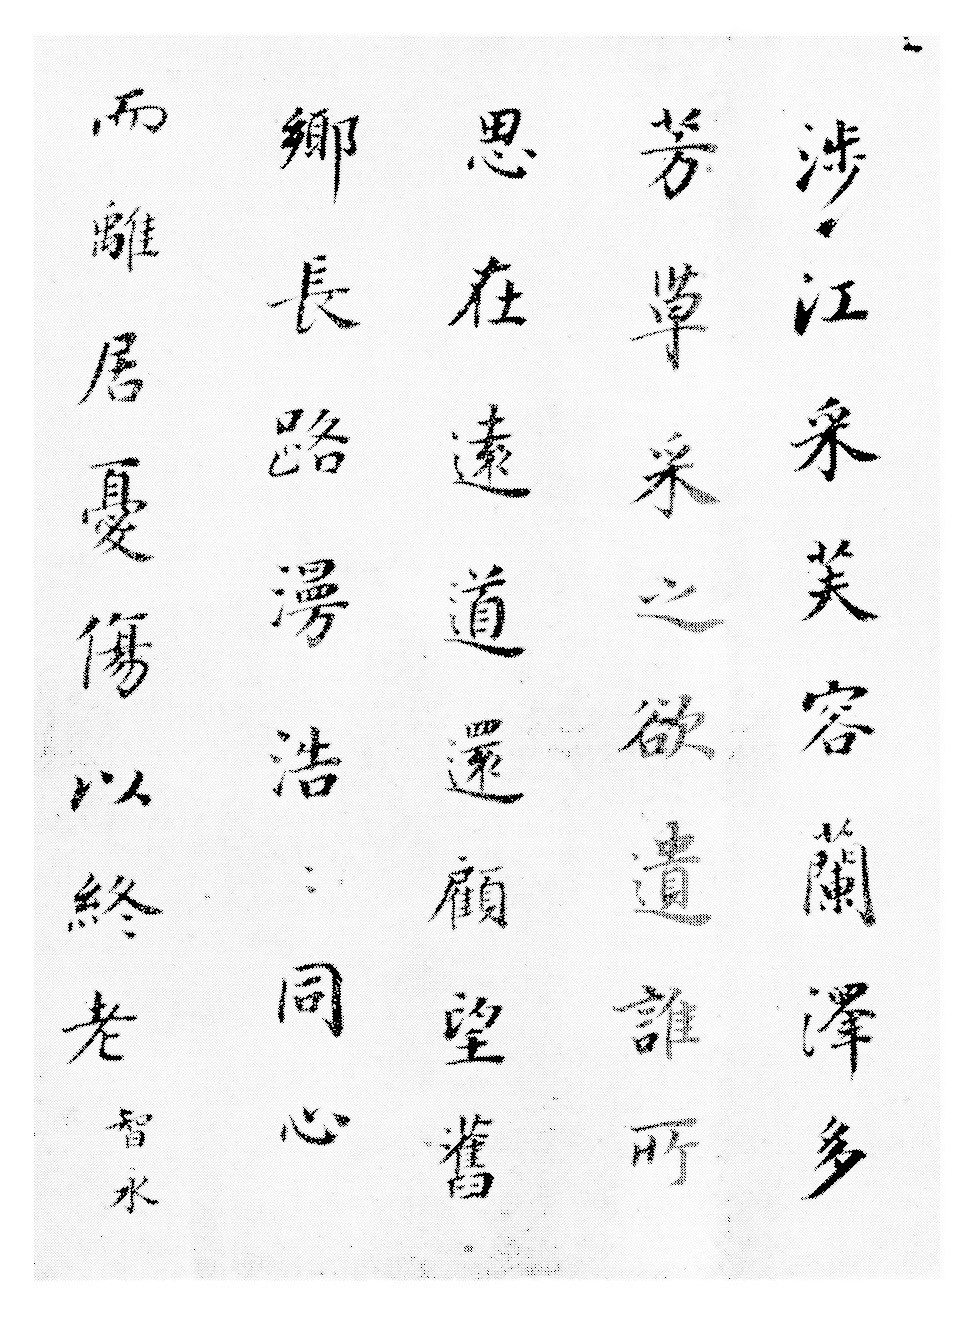 涉江采芙容蘭澤多
芳草采之欲遺誰所
思在遠道還顧望舊
鄉長路漫浩〻同心
而離居憂傷以終老
智永